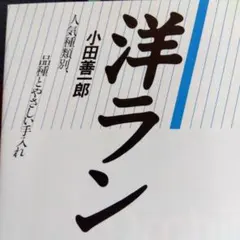 洋ラン
小田善一郎
人気種類別、
品種とやさしい手入れ